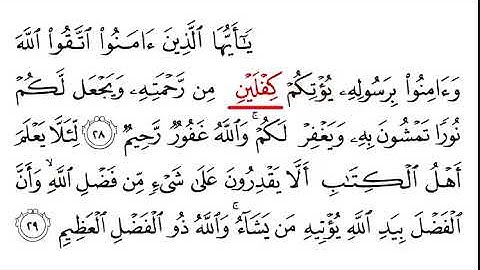 يَٰٓأَيُّهَا ٱلَّذِينَ ءَامَنُوا۟ ٱتَّقُوا۟ ٱللَّهَ
وَءَامِنُوا۟ بِرَسُولِهِۦ يُؤْتِكُمْ كِفْلَيْنِ مِن رَّحْمَتِهِۦ وَيَجْعَل لَّكُمْ
نُورًا تَمْشُونَ بِهِۦ وَيَغْفِرْ لَكُمْ ۚ وَٱللَّهُ غَفُورٌ رَّحِيمٌ ٢٨ لِّئَلَّا يَعْلَمَ
أَهْلُ ٱلْكِتَٰبِ أَلَّا يَقْدِرُونَ عَلَىٰ شَىْءٍ مِّن فَضْلِ ٱللَّهِ ۙ وَأَنَّ
ٱلْفَضْلَ بِيَدِ ٱللَّهِ يُؤْتِيهِ مَن يَشَآءُ ۚ وَٱللَّهُ ذُو ٱلْفَضْلِ ٱلْعَظِيمِ ٢٩